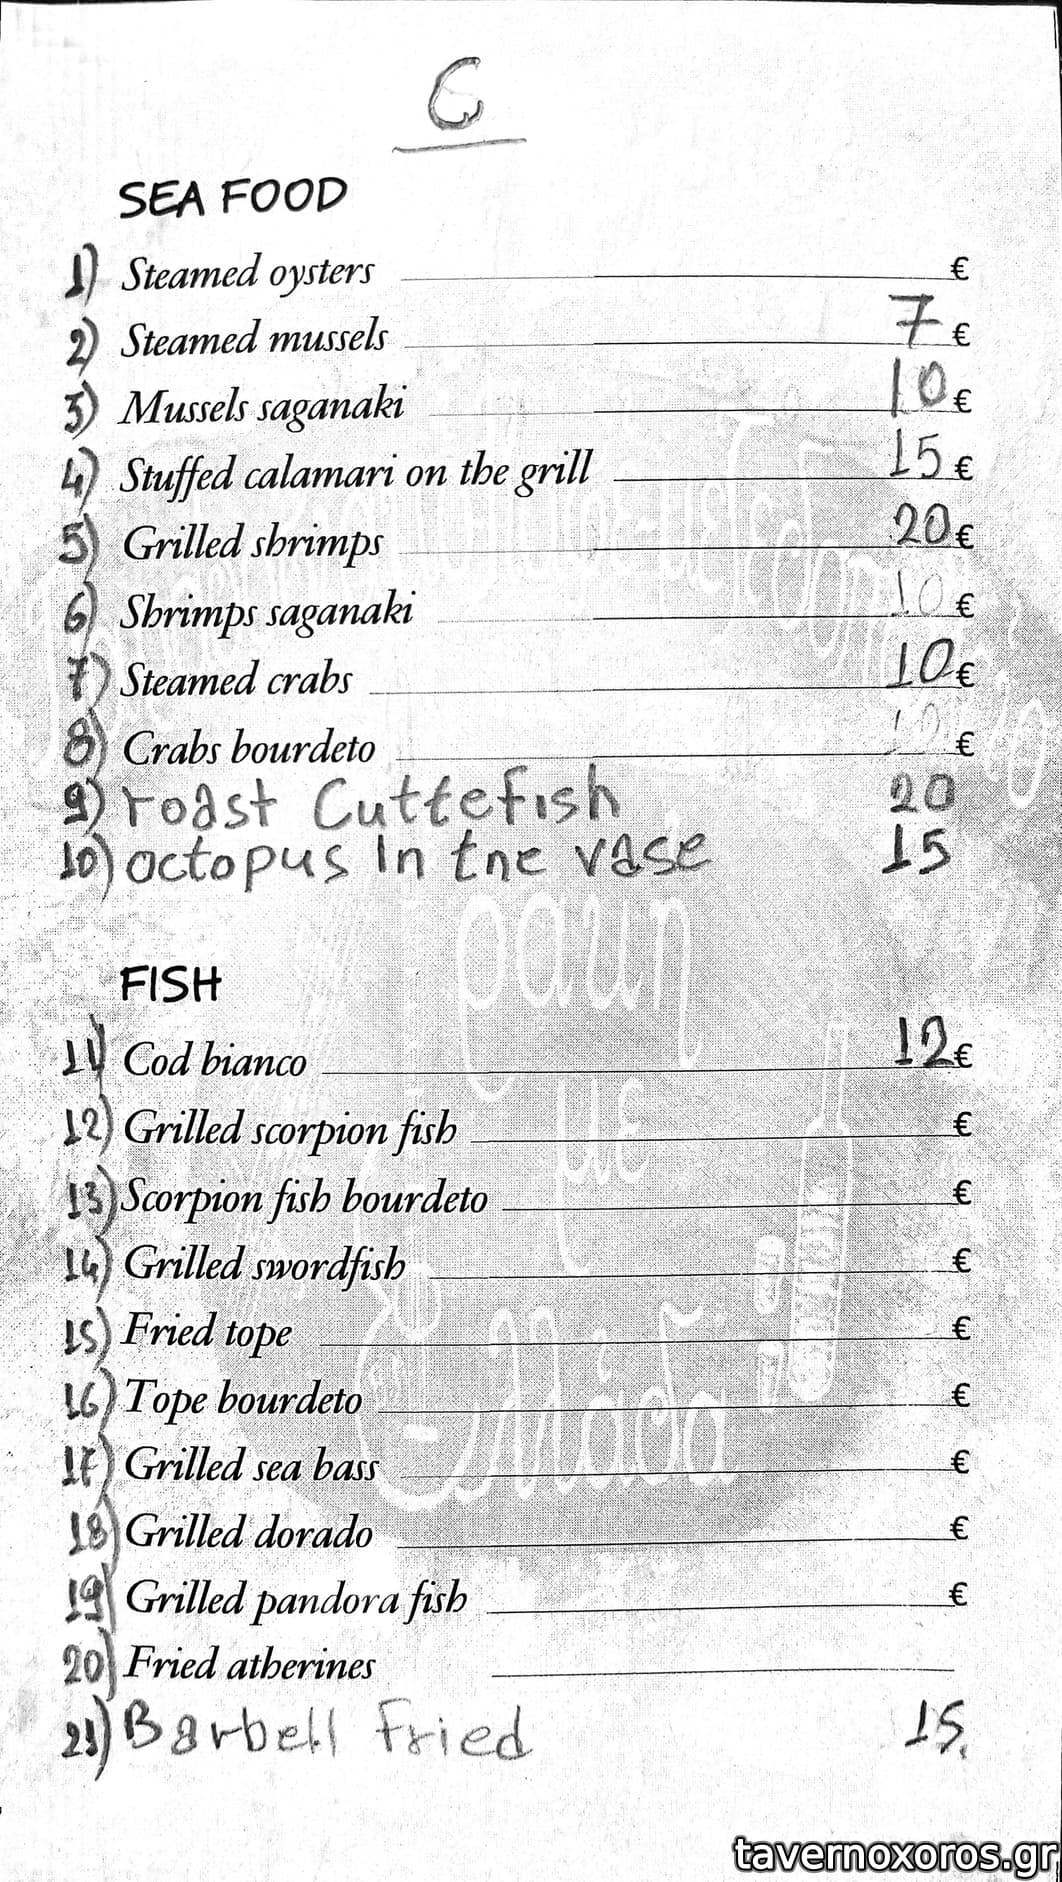 6
SEA FOOD
1) Steamed oysters €
2) Steamed mussels 7 €
3) Mussels saganaki 10 €
4) Stuffed calamari on the grill 15 €
5) Grilled shrimps 20 €
6) Shrimps saganaki 10 €
7) Steamed crabs 10 €
8) Crabs bourdeto €
9) roast Cuttefish 20
10) octopus in tne vase 15
FISH
11) Cod bianco 12 €
12) Grilled scorpion fish €
13) Scorpion fish bourdeto €
14) Grilled swordfish €
15) Fried tope €
16) Tope bourdeto €
17) Grilled sea bass €
18) Grilled dorado €
19) Grilled pandora fish €
20) Fried atherines
21) Barbell fried 15.
tavernoxoros.gr